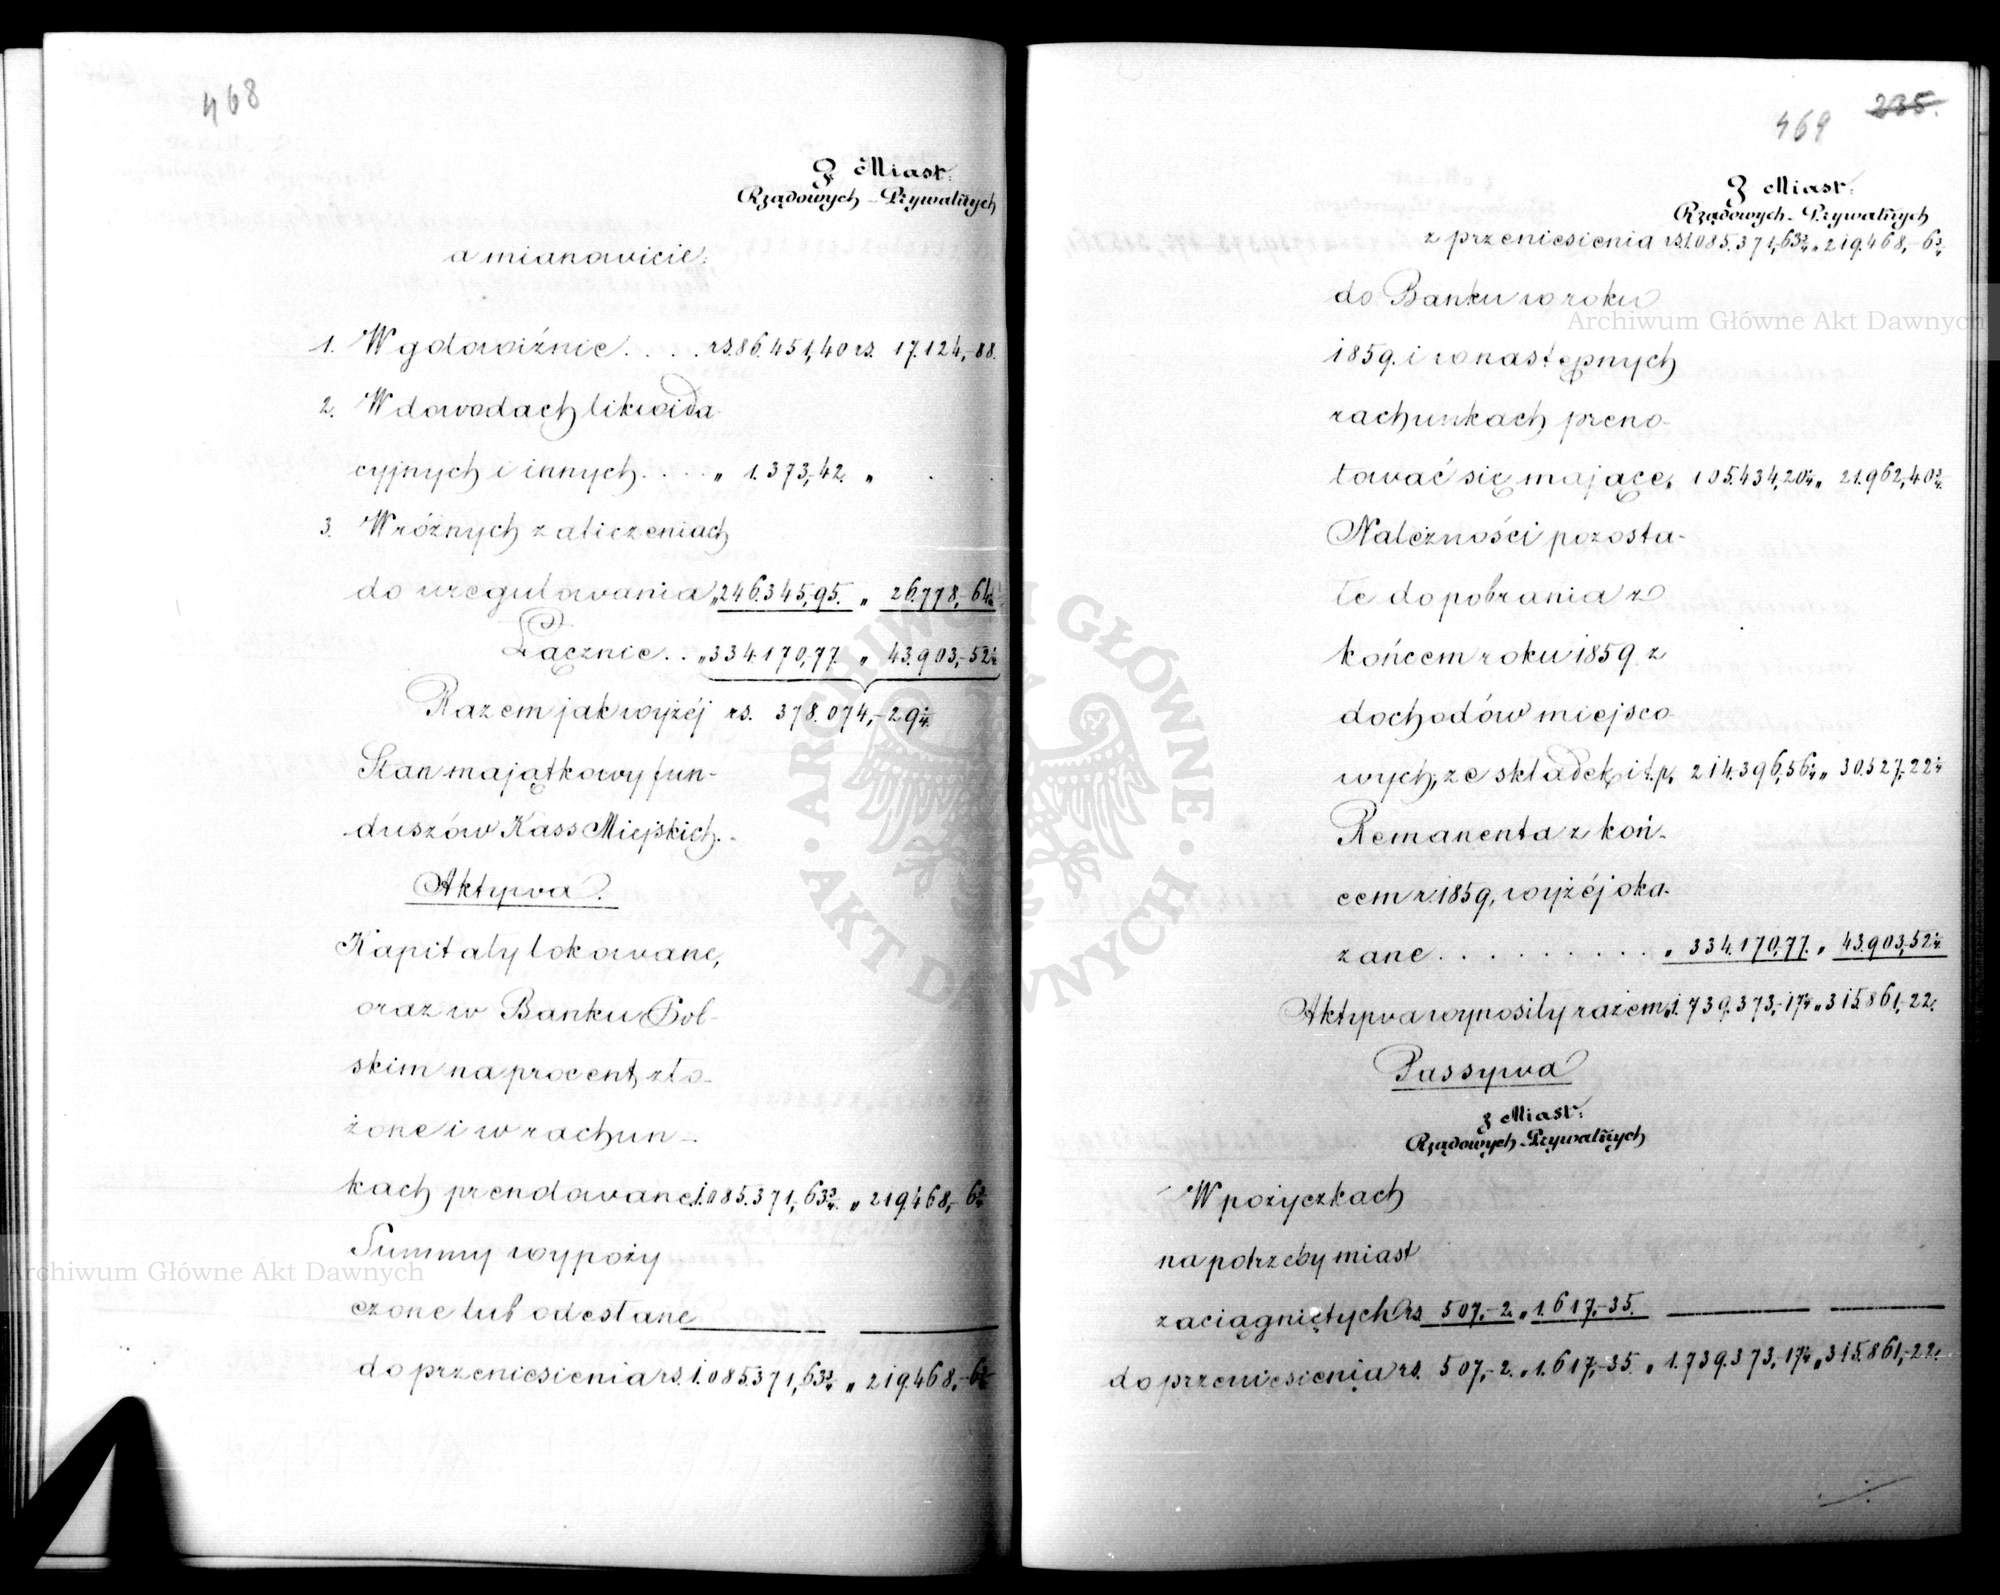 468
Z Miast:
Rządowych - Prywatnych
a mianowicie:
1. W gotowiźnie . . . . rs. 86.451,40 rs. 17.124,-88.
2. W dowodach likwida
cyjnych i innych . . . . „ 1.373,-42. „ . .
3. W różnych zaliczeniach
do uregulowania „ 246.345,-95. „ 26.778,-64¼
Łącznie . . „ 334.170,-77. „ 43.903,-52¼
Razem jak wyżéj rs. 378.074,-29¼.
Stan majątkowy fun-
duszów Kass Miejskich.-
Aktywa.
Kapitały lokowane,
oraz w Banku Pol-
skim na procent zło-
żone i w rachun-
kach prenotowane „ 1.085.371,-63¾ „ 219.468,-6¾
Summy wypoży
czone lub odesłane
do przeniesienia rs. 1.085.371,63¾ „ 219.468,-6¾
469 235.
Z Miast:
Rządowych - Prywatnych
z przeniesienia rs. 1.085.371,-63¾ „ 219.468,-6¾
do Banku w roku
1859. i w następnych
rachunkach preno-
tować się mające „ 105.434,20¼ „ 21.962,-40¾
Należności pozosta-
łe do pobrania z
końcem roku 1859 z
dochodów miejsco
wych, ze składek i t.p. 214.396,56¼ „ 30.527,-22¼
Remanenta z koń-
cem r. 1859, wyżéj oka-
zane . . . . . . . . . . „ 334.170,-77. „ 43.903,-52¼
Aktywa wynosiły razem „ 1.739.373,-17¼ „ 315.861,-22.
Passywa
z Miast:
Rządowych - Prywatnych
W pożyczkach
na potrzeby miast
zaciągniętych rs. 507,-2. „ 1.617,-35.
do przeniesienia rs. 507,-2. „ 1.617,-35 „ 1.739.373,-17¼ „ 315.861,-22.
Archiwum Główne Akt Dawnych
Archiwum Główne Akt Dawnych
ARCHIWUM GŁÓWNE · AKT DAWNYCH ·